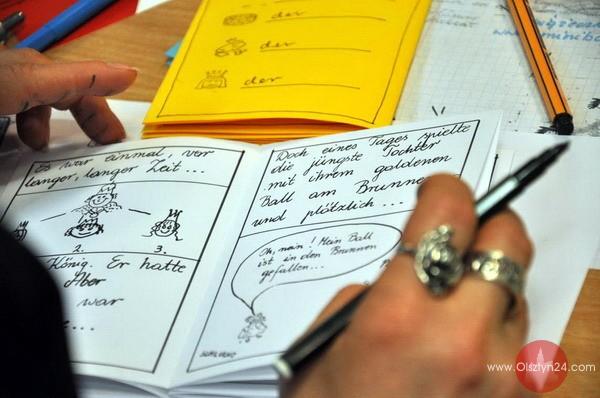 der
der
der
Es war einmal, vor
langer, langer Zeit ...
2.
3.
König. Er hatte
Aber
war
...
Doch eines Tages spielte
die jüngste Tochter
mit ihrem goldenen
Ball am
und plötzlich ...
Oh, nein! Mein Ball
ist in den Brunnen
gefallen...
www.Olsztyn24.com